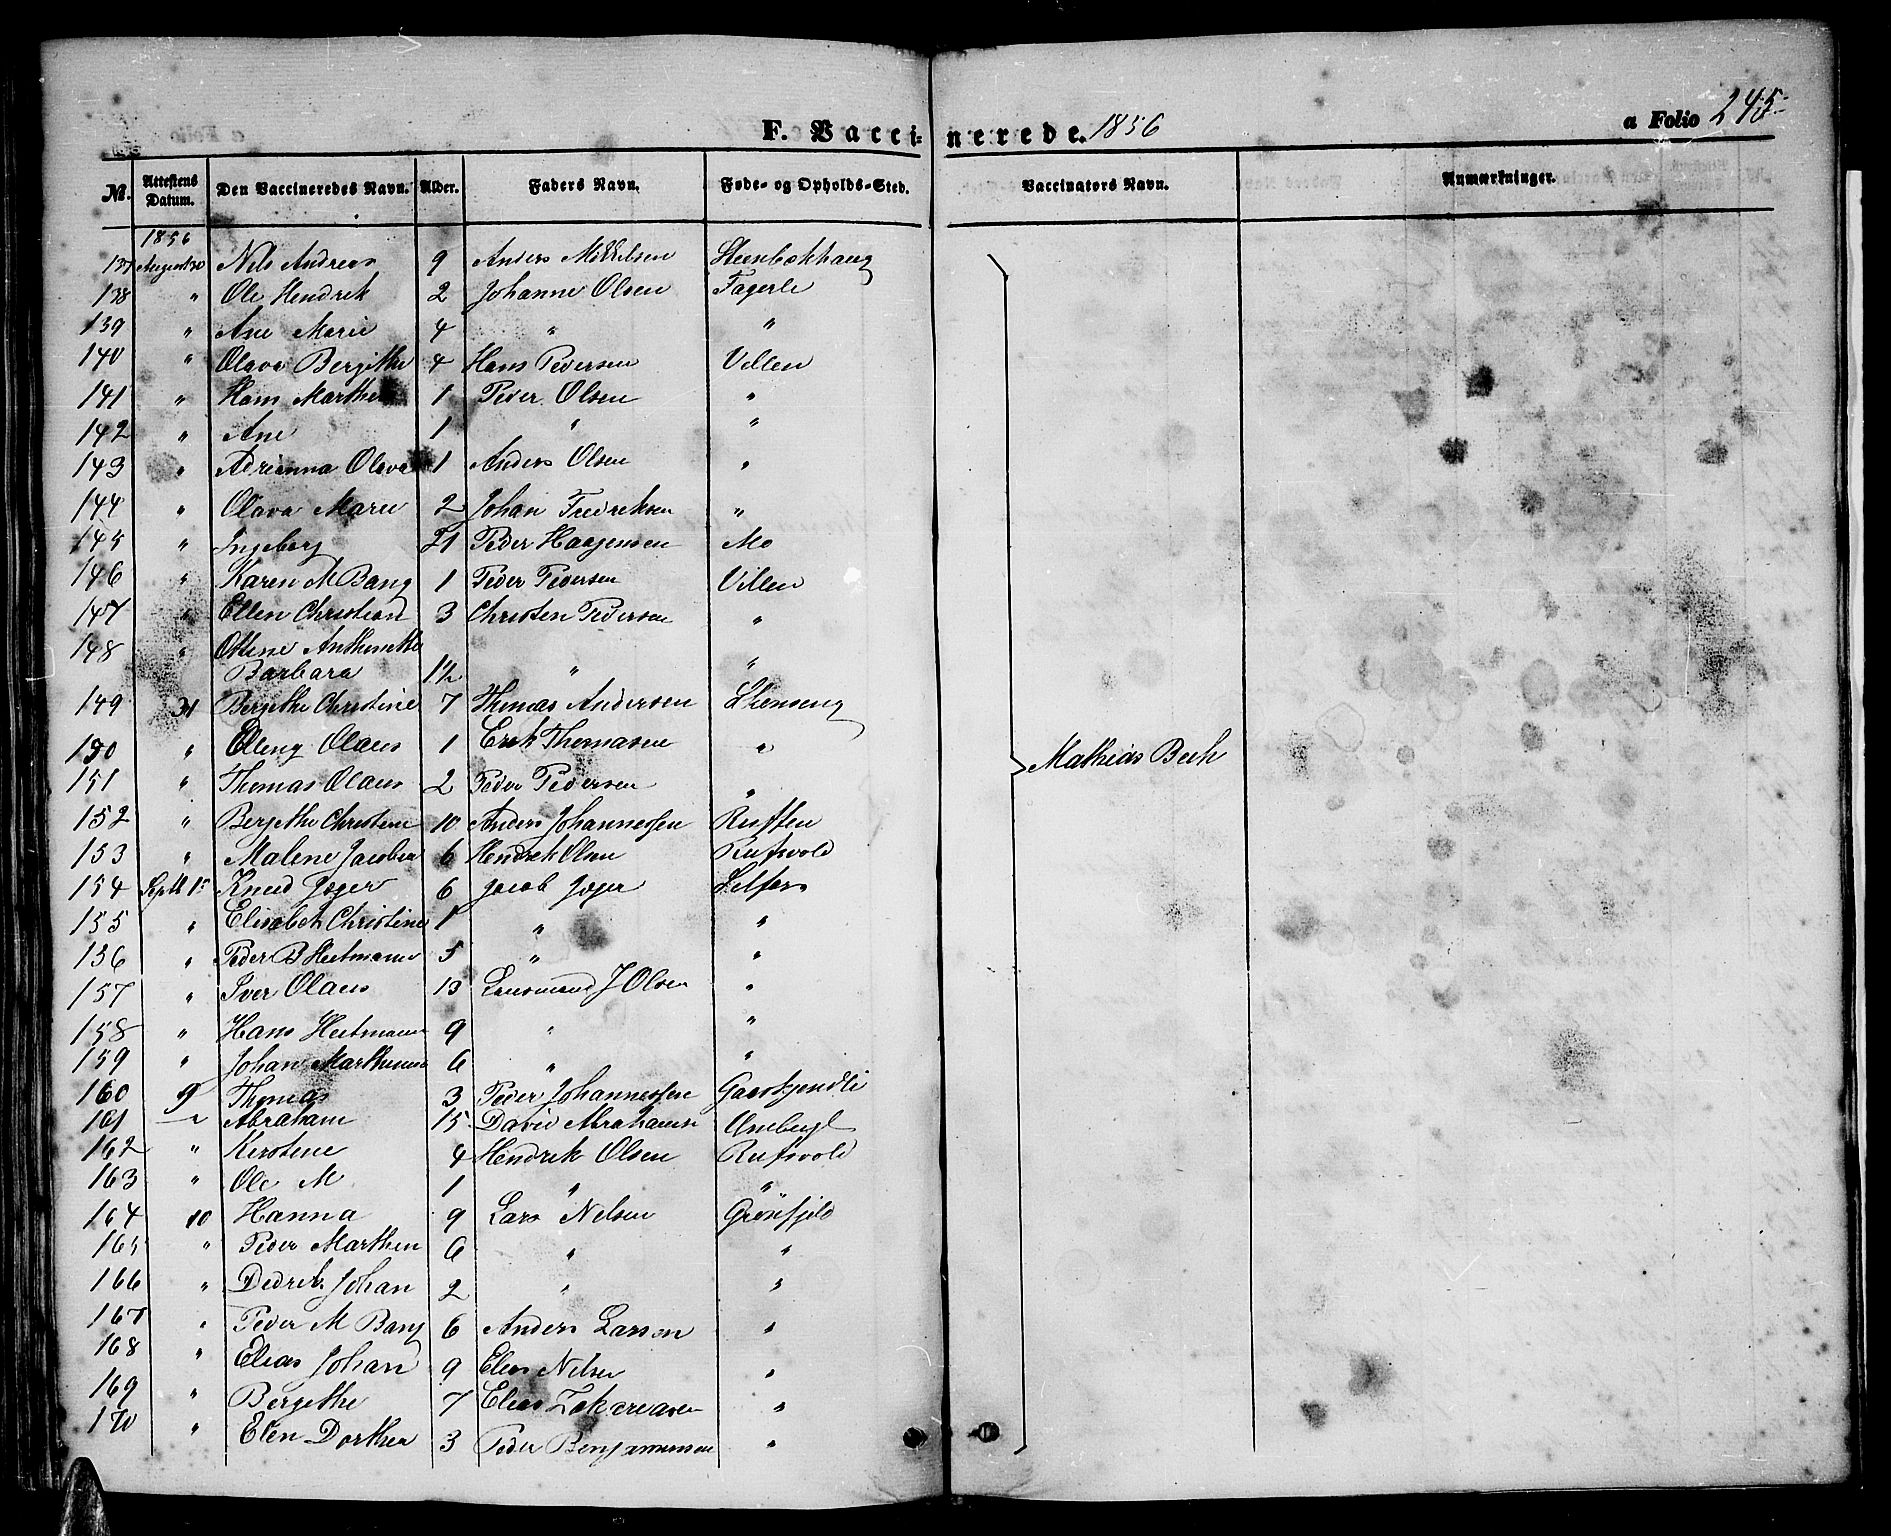 F. Vaccinerede. 1856
a Folio 245
№. Attestens Datum. Den Vaccineredes Navn. Alder. Faders Navn. Føde- og Opholds-Sted. Vaccinators Navn. Anmærkninger.
1856
137 August 30 Nils Andreas 9 Anders Mikkelsen Steenbækhaug
138 " Ole Hendrik 2 Johannes Olsen Fagerli
139 " Ane Marie 4 " "
140 " Olava Bergithe 4 Hans Pedersen Villen
141 " Hans Marthen 1 Peder Olsen "
142 " Ane 1 " "
143 " Adrianna Olava 1 Anders Olsen "
144 " Olava Marie 2 Johan Fredriksen "
145 " Ingeborg Peder Haagensen Mo
146 " Karen M Bang 1 Peder Pedersen Villen
147 " Ellen Christian 3 Christen Pedersen "
148 " Oline Anthonette
Barbara 1½ " "
149 31 Bergithe Christine 7 Thomas Andersen Stenseng
150 " Elling Olaus 1 Erik Thomasen "
151 " Thomas Olaus 2 Peder Pedersen "
Mathias Bech
152 " Bergithe Christine 10 Anders Johannessen
153 " Malene Jacobia 6 Hendrik Olsen Rufsvold
154 Septb 1 Knud Jæger 6 Jacob Jæger Selfors
155 " Elisabeth Christine 1 " "
156 " Peder B Heitmann 5 " "
157 " Iver Olaus 13 Lensmand J Olsen "
158 " Hans Heitmann 9 " "
159 " Johan Marthinus 6 " "
160 9 Thomas 3 Peder Johannessen
161 " Abraham 15 David Abrahamsen
162 " Kirstine 4 Hendrik Olsen Rufsvold
163 " Ole M 1 " "
164 10 Hanna 9 Lars Nelsen Grønfjeld
165 " Peder Marthen 6 " "
166 " Dedrik Johan 2 " "
167 " Peder M Bang 6 Anders Larsen "
168 " Elias Johan 9 Elias Nelsen "
169 " Bergethe 7 Elias Zakariasen "
170 " Elen Dorthea 3 Peder Benjaminsen "